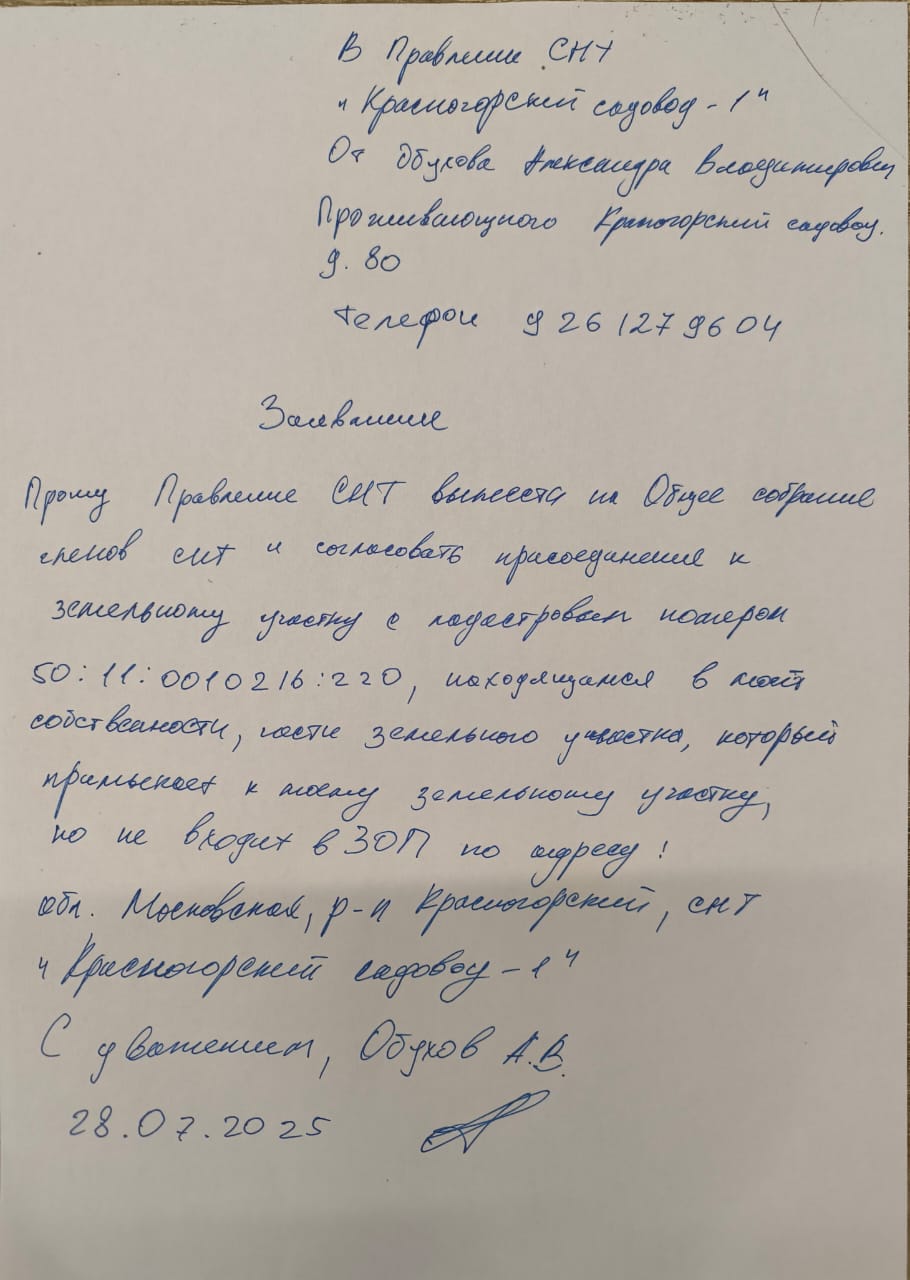 В Правление СНТ
"Красногорский садовод-1"
От Обухова Александра Владимировича
Проживающего Красногорский садовод.
д. 80
телефон 926 127 96 04
Заявление
Прошу Правление СНТ вынести на Общее собрание
членов снт и согласовать присоединение к
земельному участку с кадастровым номером
50:11:0010216:220, находящимся в моей
собственности, части земельного участка, который
примыкает к моему земельному участку,
но не входит в ЗОП по адресу:
обл. Московская, р-н Красногорский, снт
"Красногорский садовод-1"
С уважением, Обухов А.В.
28.07.2025